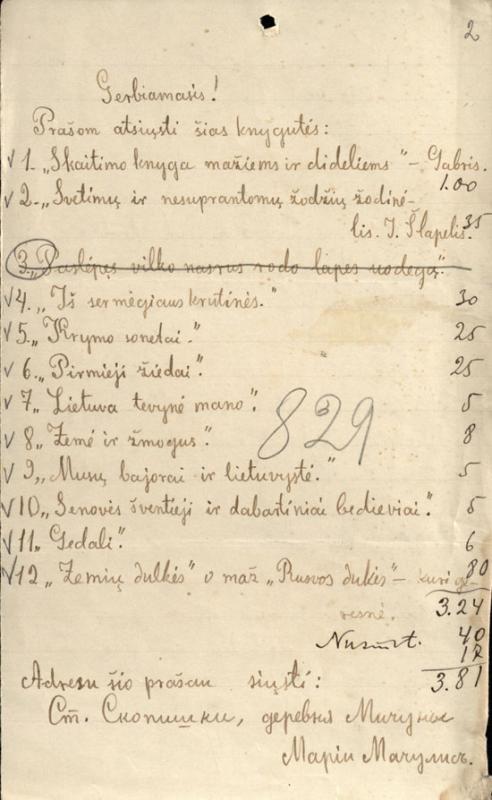 2
Gerbiamasis!
Prašom atsiųsti šias knygutės:
√ 1. „Skaitimo knyga mažiems ir dideliems" – Gabris.
1.00
√ 2. „Svetimų ir nesuprantomų žodžių žodinė-
lis. J. Šlapelis. 35
3. „Paslėpęs vilko nasrus rodo lapės uodegą".
√ 4. „Iš sermėgiaus krutinės." 30
√ 5. „Krymo sonetai." 25
√ 6. „Pirmieji žiedai". 25
√ 7. „Lietuva tevynė mano". 5
√ 8. „Žemė ir žmogus". 8
√ 9. „Musų bajorai ir lietuvystė." 5
√ 10. „Senovės šventieji ir dabartiniai bedieviai". 5
√ 11. „Gedali". 6
√ 12 „Žemių dulkės" o maž „Rusvos dukės" – kuri ge- 80
resnė. 3.24
829
40
17
3.81
Adresu šio prašau siųsti:
Ст. Скопишки, деревня
Маріи Мачулисъ.